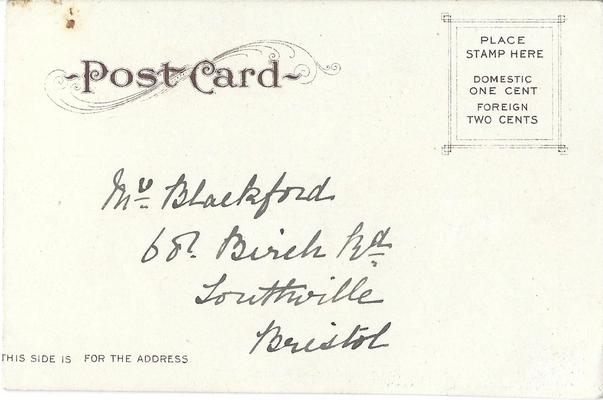 Post Card
PLACE
STAMP HERE
DOMESTIC
ONE CENT
FOREIGN
TWO CENTS
Mr Blackford
Birch Rd
Southville
Bristol
THIS SIDE IS FOR THE ADDRESS